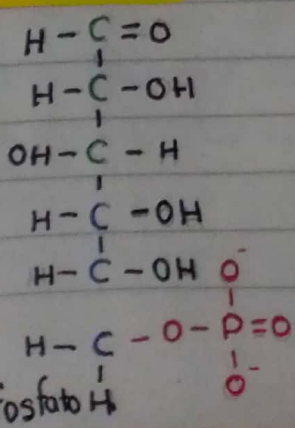 H - C = O
H - C - OH
OH - C - H
H - C - OH
H - C - OH O⁻
H - C - O - P = O
osfato H O⁻